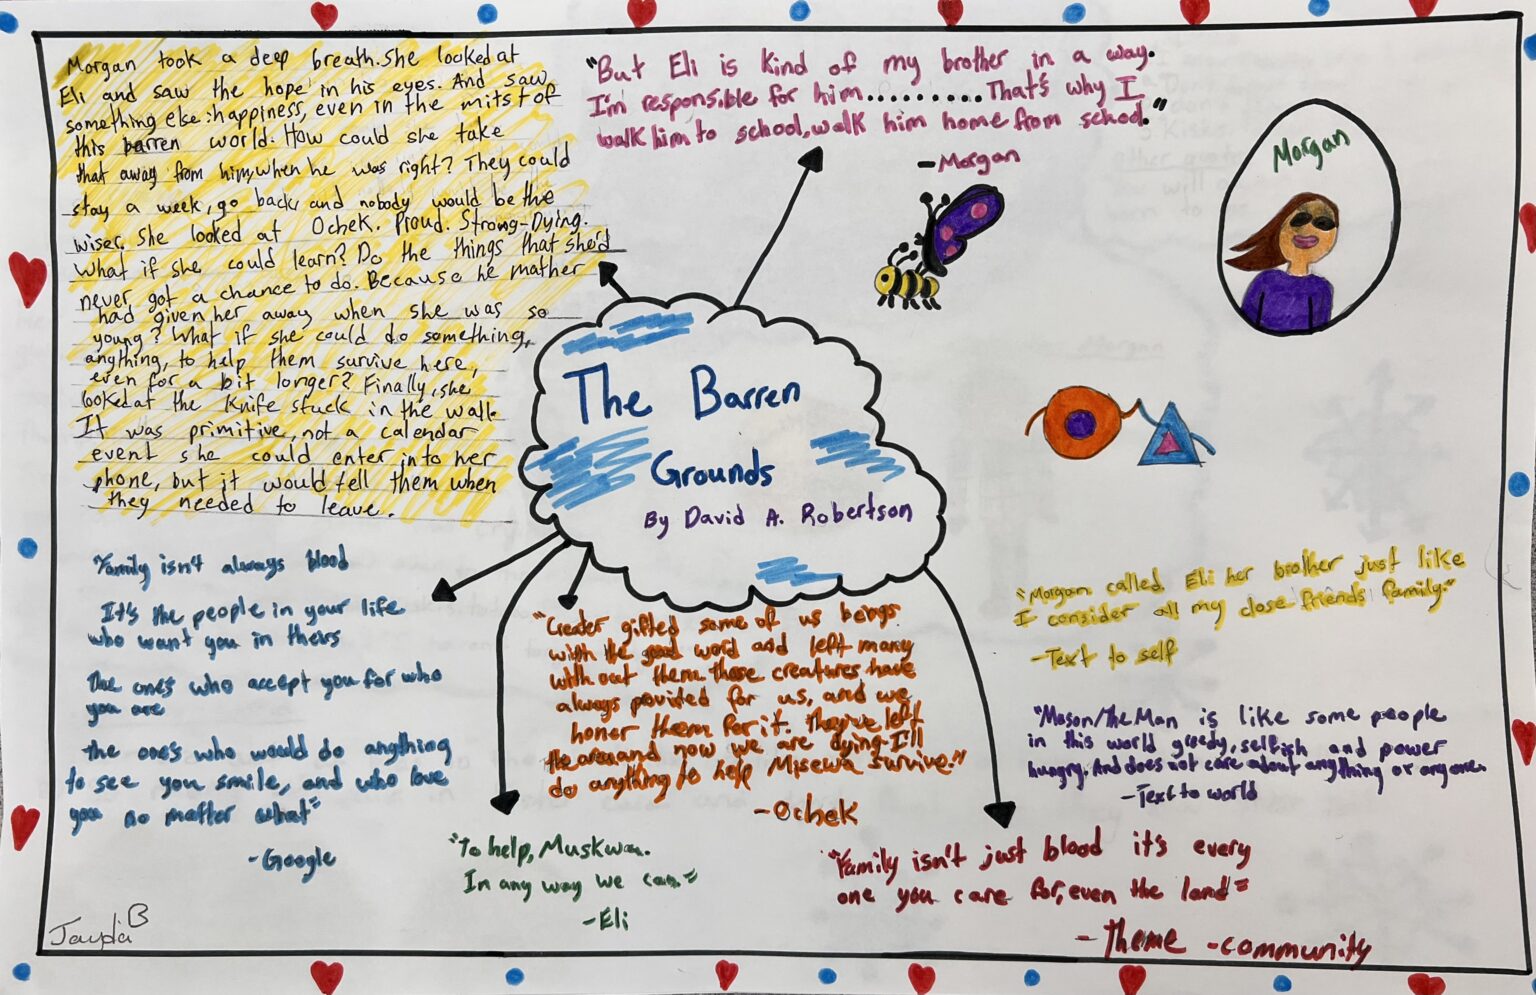 Morgan took a deep breath. She looked at
Eli and saw the hope in his eyes. And saw
something else: happiness, even in the mitst of
this barren world. How could she take
that away from him, when he was right? They could
stay a week, go back, and nobody would be the
wiser. She looked at Ochek. Proud. Strong-Dying.
What if she could learn? Do the things that she'd
never got a chance to do. Because he mather
had given her away when she was so
young? What if she could do something,
anything, to help them survive here,
even for a bit longer? Finally, she
looked at the Knife stuck in the wall.
It was primitive, not a calendar
event she could enter into her
phone, but it would tell them when
they needed to leave.
"But Eli is kind of my brother in a way.
I'm responsible for him..........That's why I
walk him to school, walk him home from school."
-Morgan
Morgan
The Barren
Grounds
By David A. Robertson
"Family isn't always blood
It's the people in your life
who want you in theirs
the one's who accept you for who
you are
the one's who would do anything
to see you smile, and who love
you no matter what"
-Google
"Creater gifted some of us beings
with the good word and left many
with out them those creatures have
always povided for us, and we
honor them for it. They've left
the area and now we are dying-I'll
do anything to help Misewa survive."
-Ochek
"To help, Muskwa.
In any way we can."
-Eli
"Morgan called Eli her brother just like
I consider all my close friends family."
-Text to self
"Mason/the Man is like some people
in this world greedy, selfish and power
hungry. And does not care about anything or anyone.
-Text to world
"Family isn't just blood it's every
one you care for, even the land"
-theme -community
Jayda B